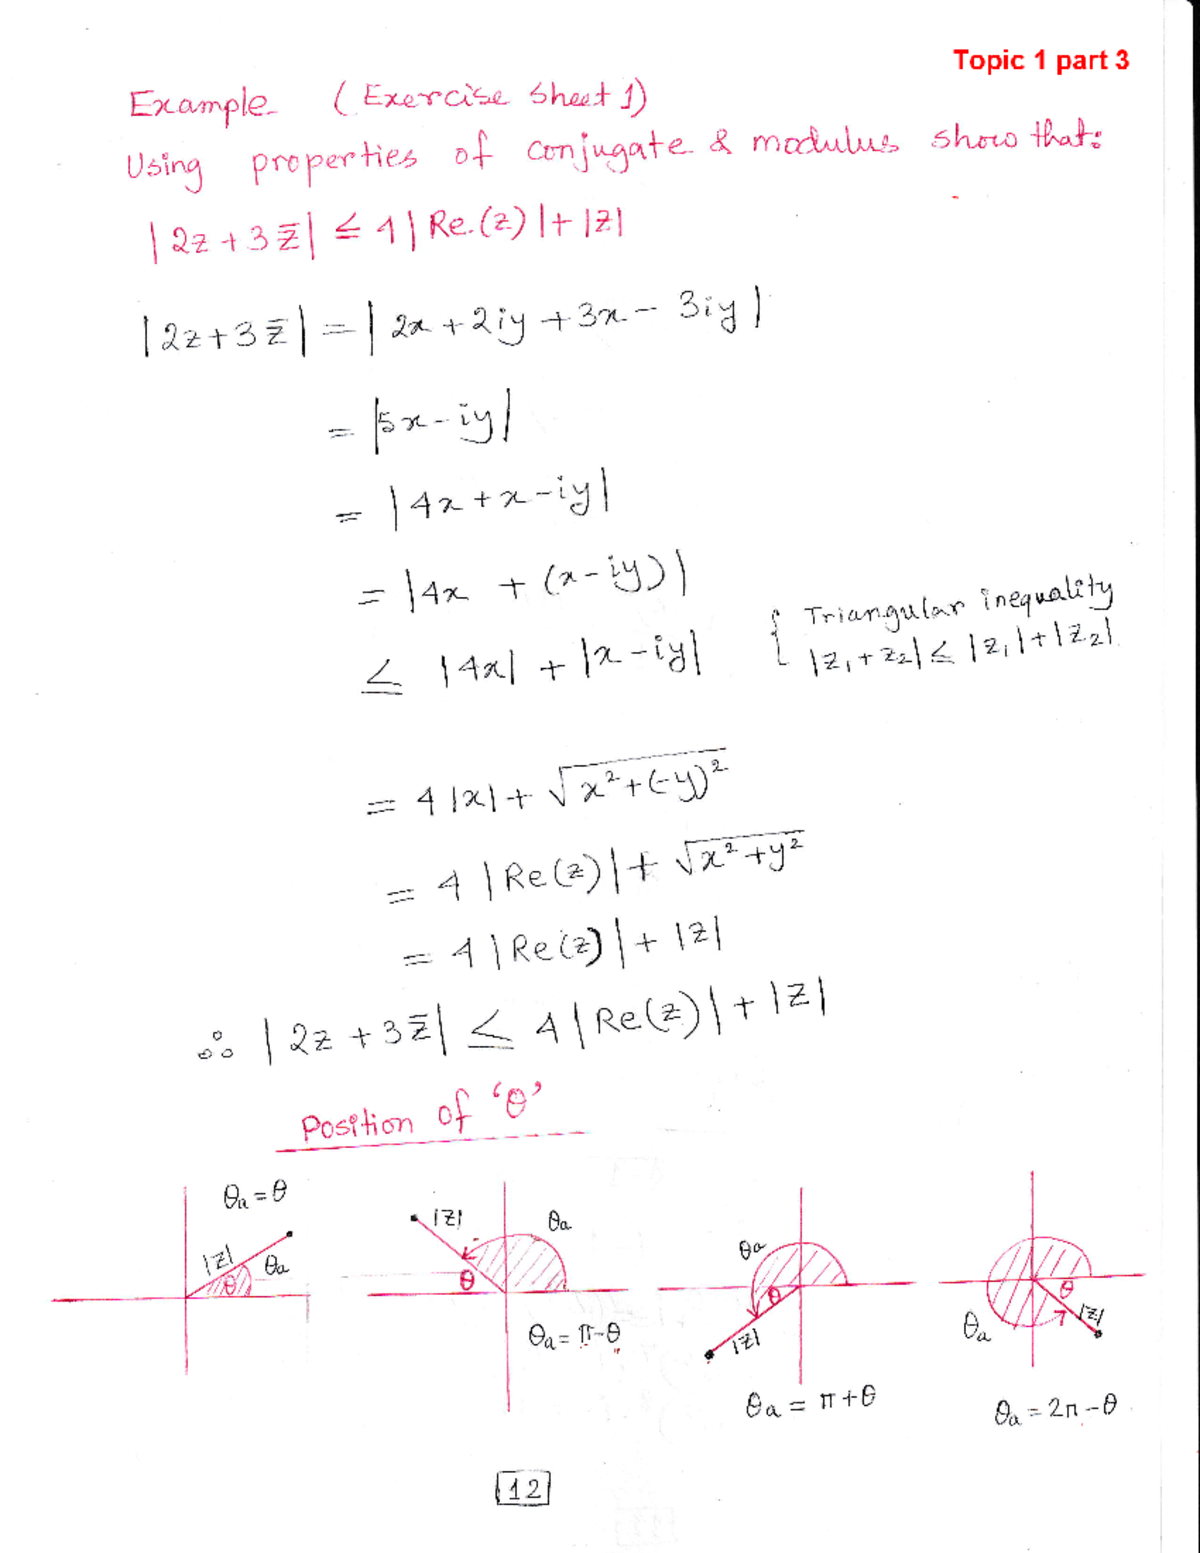 Topic 1 part 3
Example (Exercise Sheet 1)
Using properties of conjugate & modulus show that:
|2z + 3z̄| ≤ 4|Re.(z)| + |z|
|2z + 3z̄| = |2x + 2iy + 3x - 3iy|
= |5x - iy|
= |4x + x - iy|
= |4x + (x - iy)|
≤ |4x| + |x - iy| { Triangular inequality
|z₁ + z₂| ≤ |z₁| + |z₂|
= 4|x| + √x² + (-y)²
= 4|Re(z)| + √x² + y²
= 4|Re(z)| + |z|
∴ |2z + 3z̄| ≤ 4|Re(z)| + |z|
Position of 'θ'
θa = θ
|z| θ θa
|z| θa
θ
θa = π - θ
θa
θ
|z|
θa = π + θ
θ
θa |z|
θa = 2π - θ
12